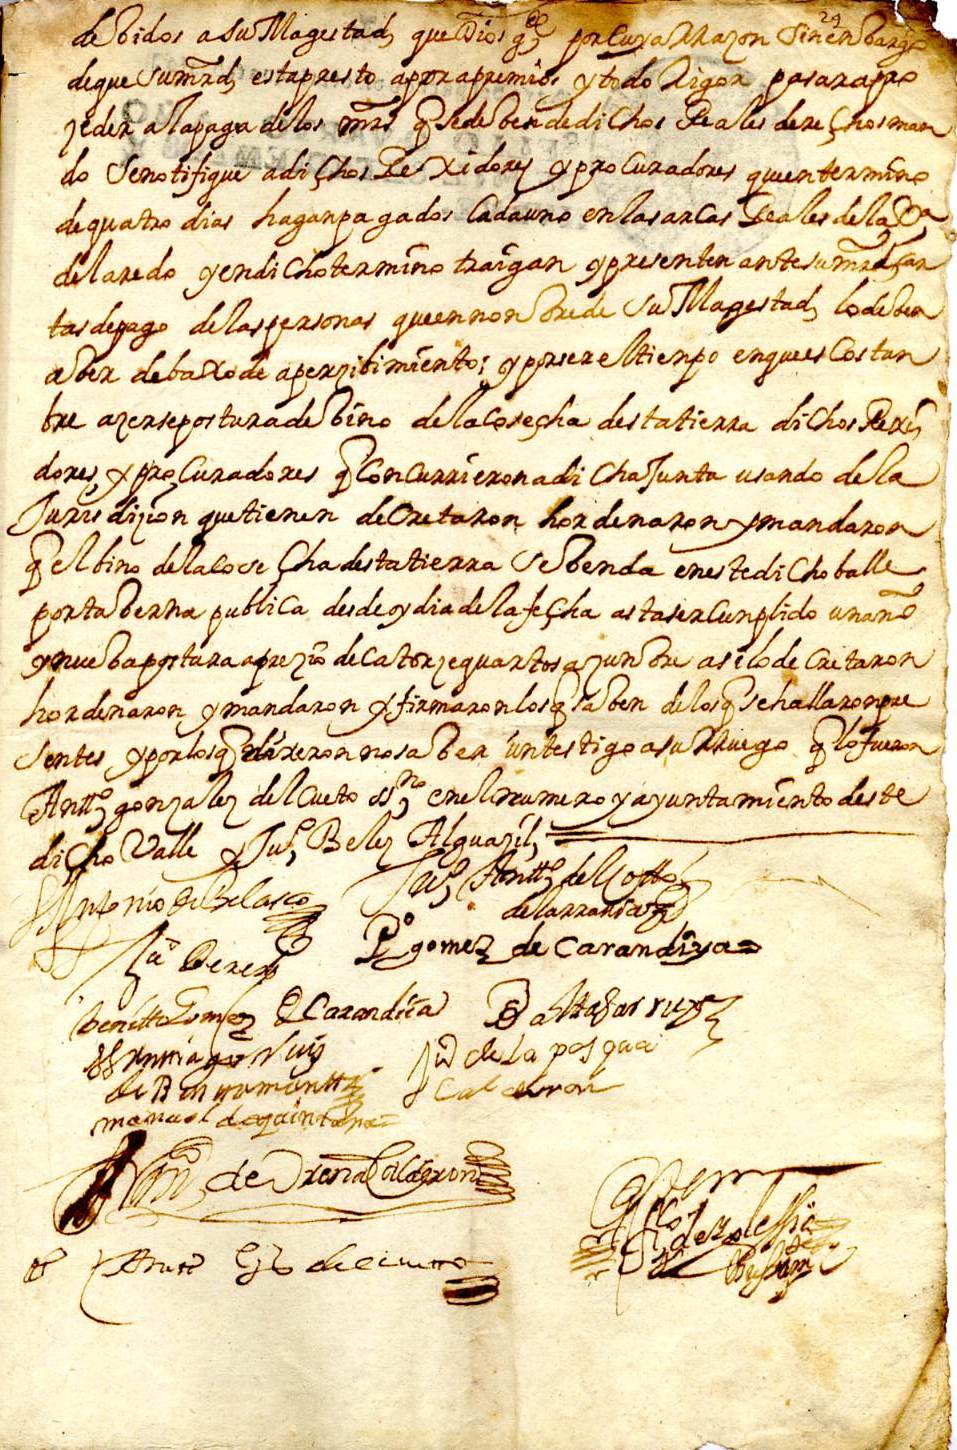 29
debidos a su Magestad que Dios g.de por cuya Rrazon sin enbargo
de que su mrd esta presto a por apremios y todo Rigor pasar a pro
zeder a la paga de los mrs q se deben de dichos Reales derechos man
do se notifique a dichos Rexidores y procuradores que en termino
de quatro dias hagan pagados cada uno en las arcas Reales de la Va
de laredo y en dicho termino traigan y presenten ante su mrd car
tas de pago de las personas que en nonbre de su Magestad lo deben
aber debaxo de aperzibimiento; y por ser el tienpo en que es costun
bre azerse postura de bino de la cosecha desta tierra dichos Rexi
dores, y procuradores q concurrieron a dicha Junta usando de la
Jurisdizion que tienen decretaron hordenaron y mandaron
q el bino de la cosecha desta tierra se benda en este dicho balle
por taberna publica desde oy dia de la fecha asta ser cunplido un año
y nueba postura a prezio de catorze quartos azunbre asi lo decretaron
hordenaron y mandaron y firmaron los q saben de los q se hallaron pre
sentes y por los q dixeron no saber un testigo a su Rruego q lo fueron
Antt.o gonzalez del Cueto ss.no en el numero y ayuntamiento deste
dicho Valle y Ju.o Belez Alguazil
Antonio de Velasco Ju.o Antt.o del Cotto
de la
P.o gomez de Carandixa
Benitto gomez de Carandixa Baltasar ruyz
ruiz Ju de la pasqua
de Calderon
manuel de quintana
de Calderon
Antte mi
de
Antt.o Gz de cueto